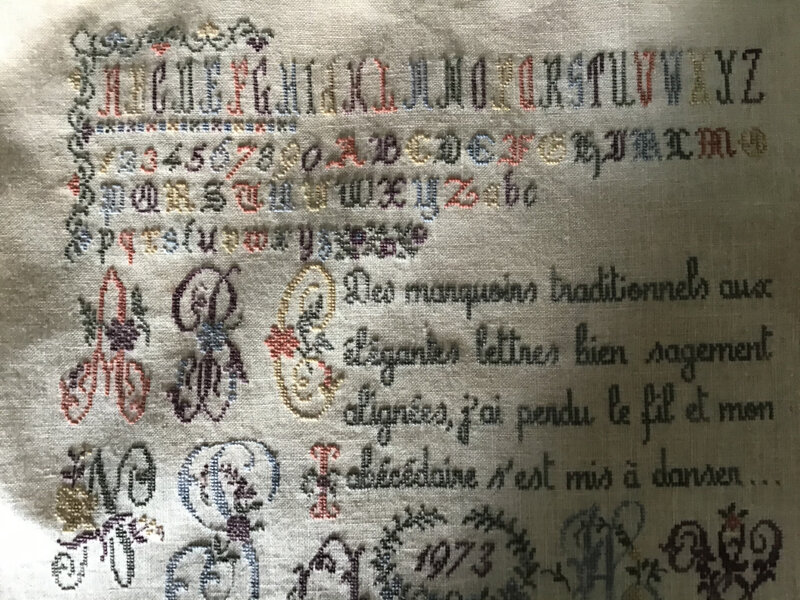 ABCDEFGHIJKLMNOPQRSTUVWXYZ
1234567890 ABCDEFGHIJKLMO
PQRSTUVWXYZ abc
pqrstuvwxyz
A B C
Des marquoirs traditionnels aux
élégantes lettres bien sagement
alignées, j'ai perdu le fil et mon
abécédaire s'est mis à danser...
N C I
1973